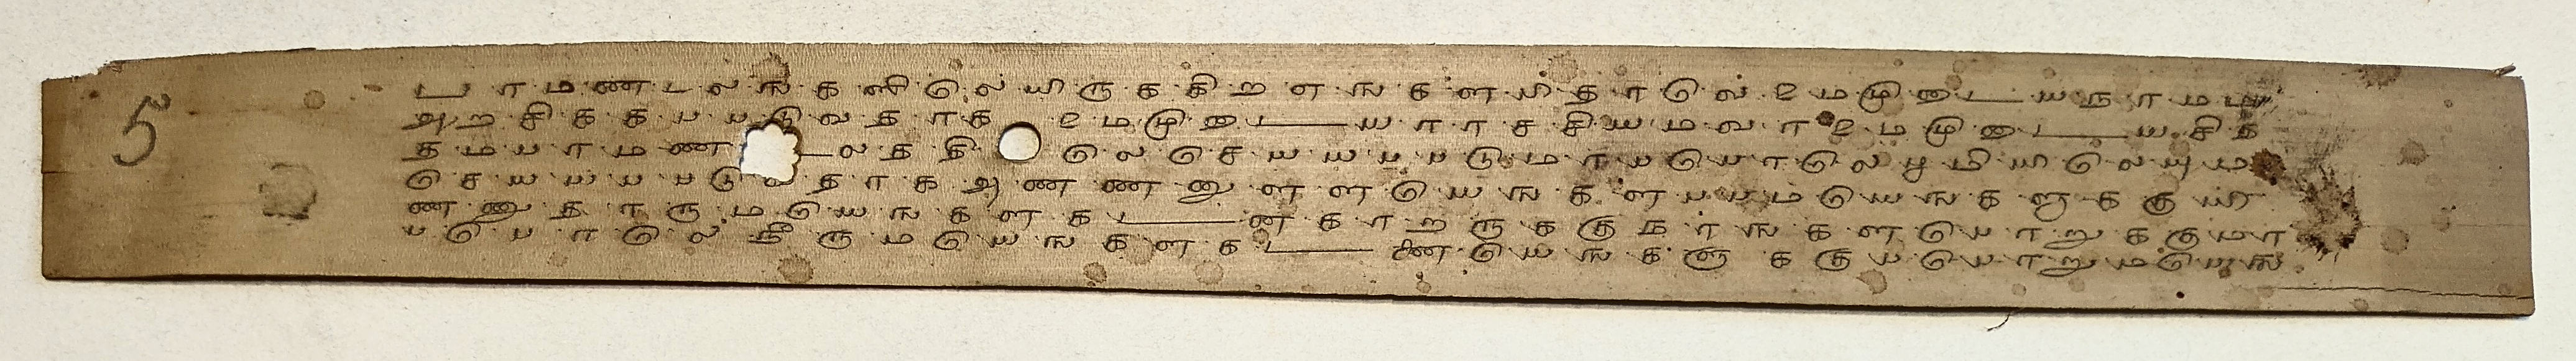 5
பரமணடலஙகளிலெயிருககிறஎஙகளபிதாவெ உமமுடையநாமம
அறசிககபபடுவதாக உமமுடையராசசியமவரஉமமுடையசித
தமபரமண டலததி லெசெயயபபடுமாபபொலெபூமியிலெயும
செயயபபடுவதாக அனனனுளளயெஙகளபபமயெஙகளுககுயி
ணணுதாருமயெஙகளகடன காறருககுநாஙகளபொறுககுமா
பபொலெ நீருமயெஙகளகட னபெஙகளுககுபபொறுமயெங